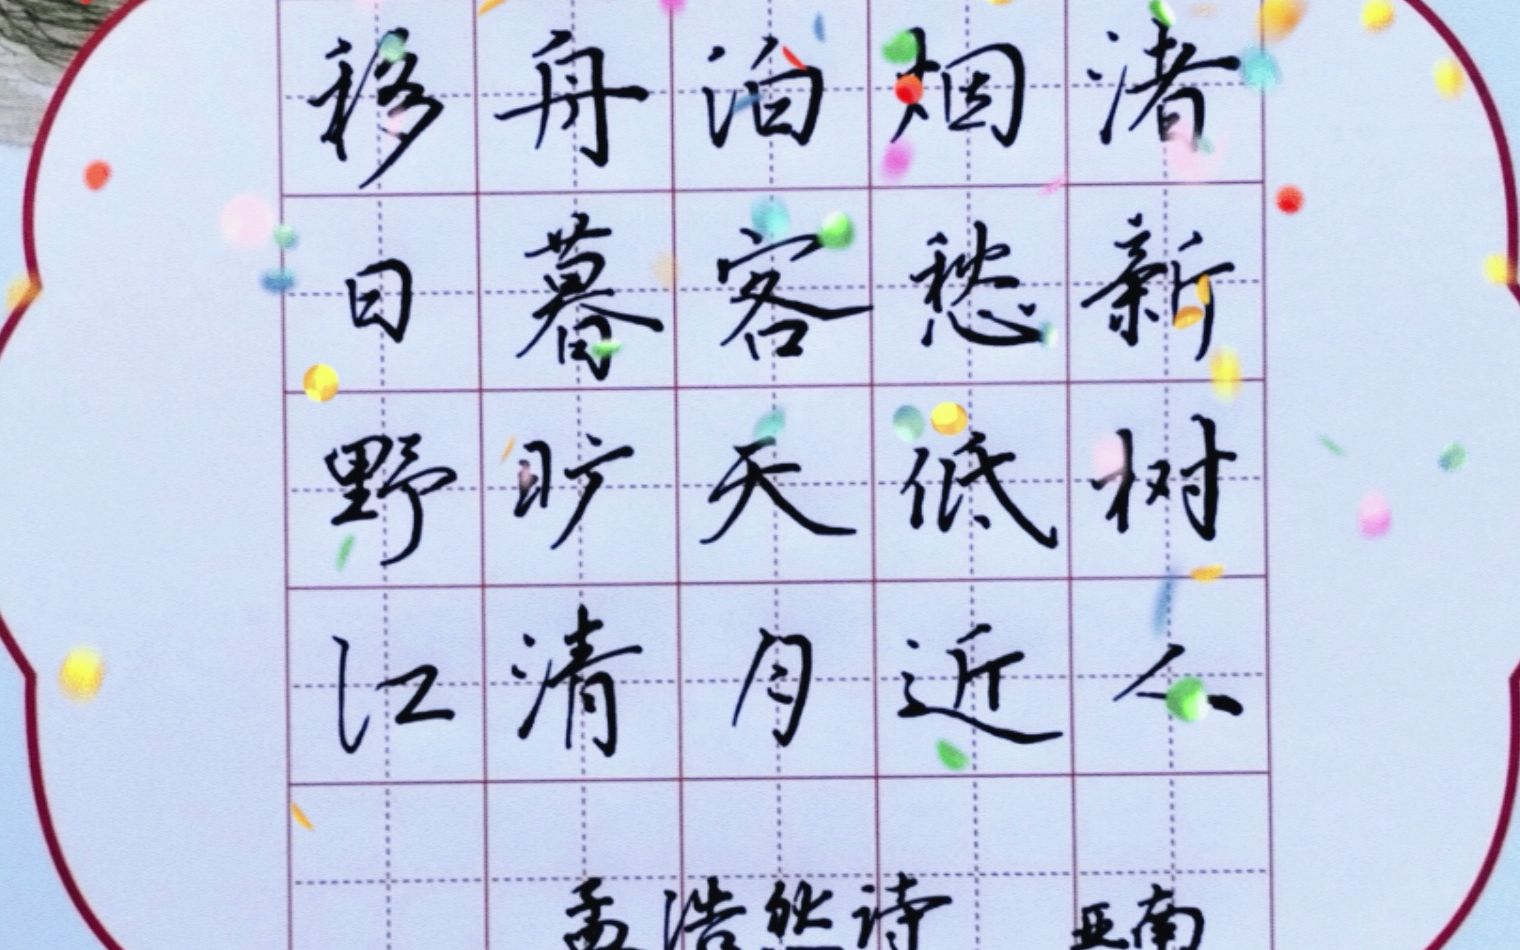 移舟泊烟渚
日暮客愁新
野旷天低树
江清月近人
孟浩然诗 亚南